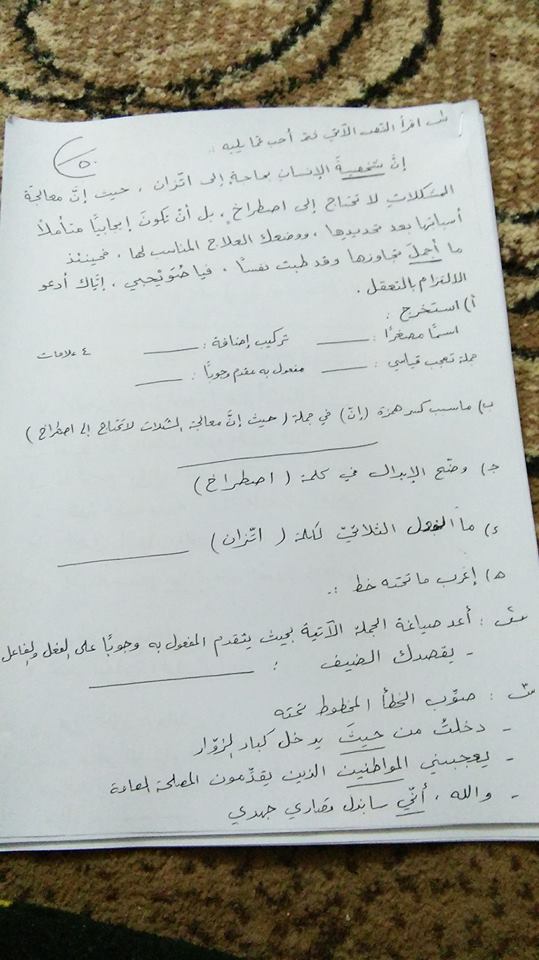 س١ اقرأ النص الآتي ثم أجب عمّا يليه :
٥٠
إنَّ شخصيةَ الإنسانِ بحاجةٍ إلى اتّزان ، حيث إنَّ معالجةَ
المشكلاتِ لا تحتاج إلى اصطراخٍ ، بل أنْ تكونَ إيجابيًا متأملاً
أسبابَها بعد تحديدِها ، ووضعك العلاجَ المناسب لها ، فحينئذٍ
ما أجملَ تجاوزها وقد طبت نفسًا ، فيا صُوَيْحبي ، إيّاك أدعو
الالتزام بالتعقل .
أ) استخرج :
اسمًا مصغرًا : ـــــ تركيب إضافة : ـــــ ٤ علامات
جملة تعجب قياسي : ـــــ مفعول به مقدم وجوبًا : ـــــ
ب) ما سبب كسر همزة (إنّ) في جملة ( حيث إنَّ معالجة المشكلات لا تحتاج إلى اصطراخ )
ج) وضّح الإبدال في كلمة ( اصطراخ )
د) ما الفعل الثلاثيّ لكلمة ( اتّزان ) ـــــ
هـ) إعرب ما تحته خط :
س٢ : أعد صياغة الجملة الآتية بحيث يتقدم المفعول به وجوبًا على الفعل والفاعل
- يقصدك الضيف : ـــــ
س٣ : صوّب الخطأ المخطوط تحته
- دخلتُ من حيثَ يدخل كبار الزوّار
- يعجبني المواطنين الذين يقدّمون المصلحة العامة
- والله ، أنّي سابذل قصارى جهدي